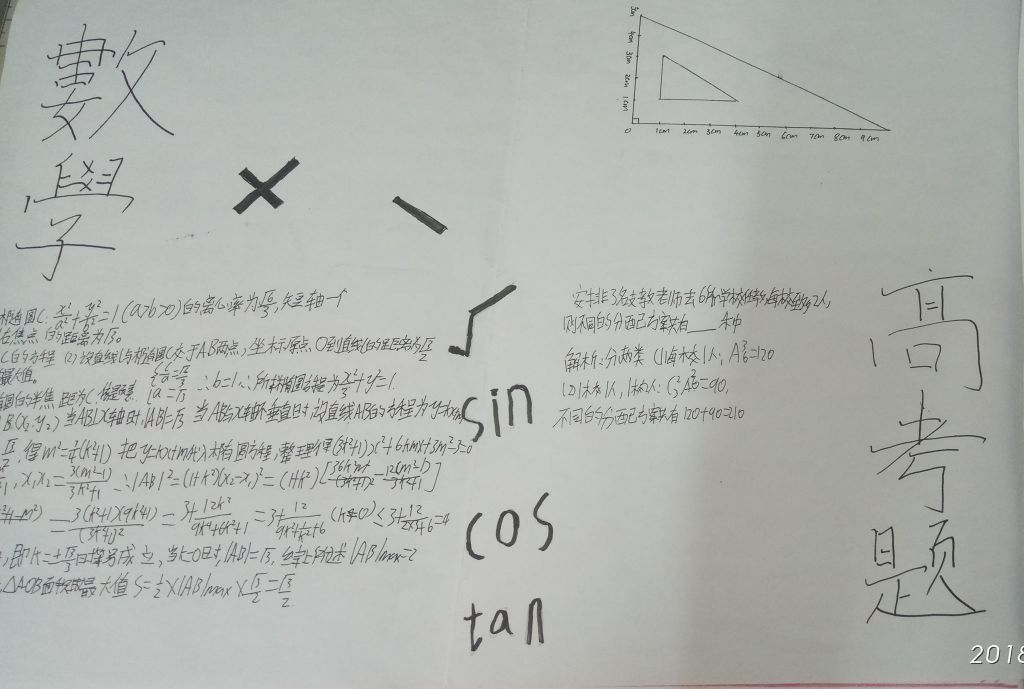 數
學
5cm
4cm
3cm
2cm
1cm
0 1cm 2cm 3cm 4cm 5cm 6cm 7cm 8cm 9cm
×
√
sin
cos
tan
椭圆C: x²/a²+y²/b²=1(a>b>0)的离心率为√6/3,短轴一个
右焦点的距离为√3.
C的方程 (2)设直线l与椭圆C交于AB两点,坐标原点O到直线l的距离为√3/2
最大值。
c/a=√6/3
a=√3
∴b=1∴所求椭圆方程为x²/3+y²=1.
B(x₂.y₂) 当AB⊥X轴时,|AB|=√3 当AB与x轴不垂直时,设直线AB的方程为y=kx+m
得m²=3/4(k²+1) 把y=kx+m代入椭圆方程,整理得(3k²+1)x²+6kmx+3m²-3=0
x₁x₂=3(m²-1)/3k²+1 ∴|AB|²=(1+k²)(x₂-x₁)²=(1+k²)[36k²m²/(3k²+1)²-12(m²-1)/3k²+1]
3(k²+1)(9k²+1)/(3k²+1)²=3+12k²/9k⁴+6k²+1=3+12/9k²+1/k²+6 (k≠0)≤3+12/2×3+6=4
,即k=±√3/3时等号成立,当k=0时,|AB|=√3,综上所述|AB|max=2
△AOB面积取最大值S=1/2×|AB|max×√3/2=√3/2
安排3名支教老师去6所学校任教,每校至多2人,
则不同的分配方案共有____种
解析:分两类 (1)每校1人:A₆³=120
(2)1校1人,1校2人:C₃²A₆²=90,
不同的分配方案共有120+90=210
高
考
题
2018